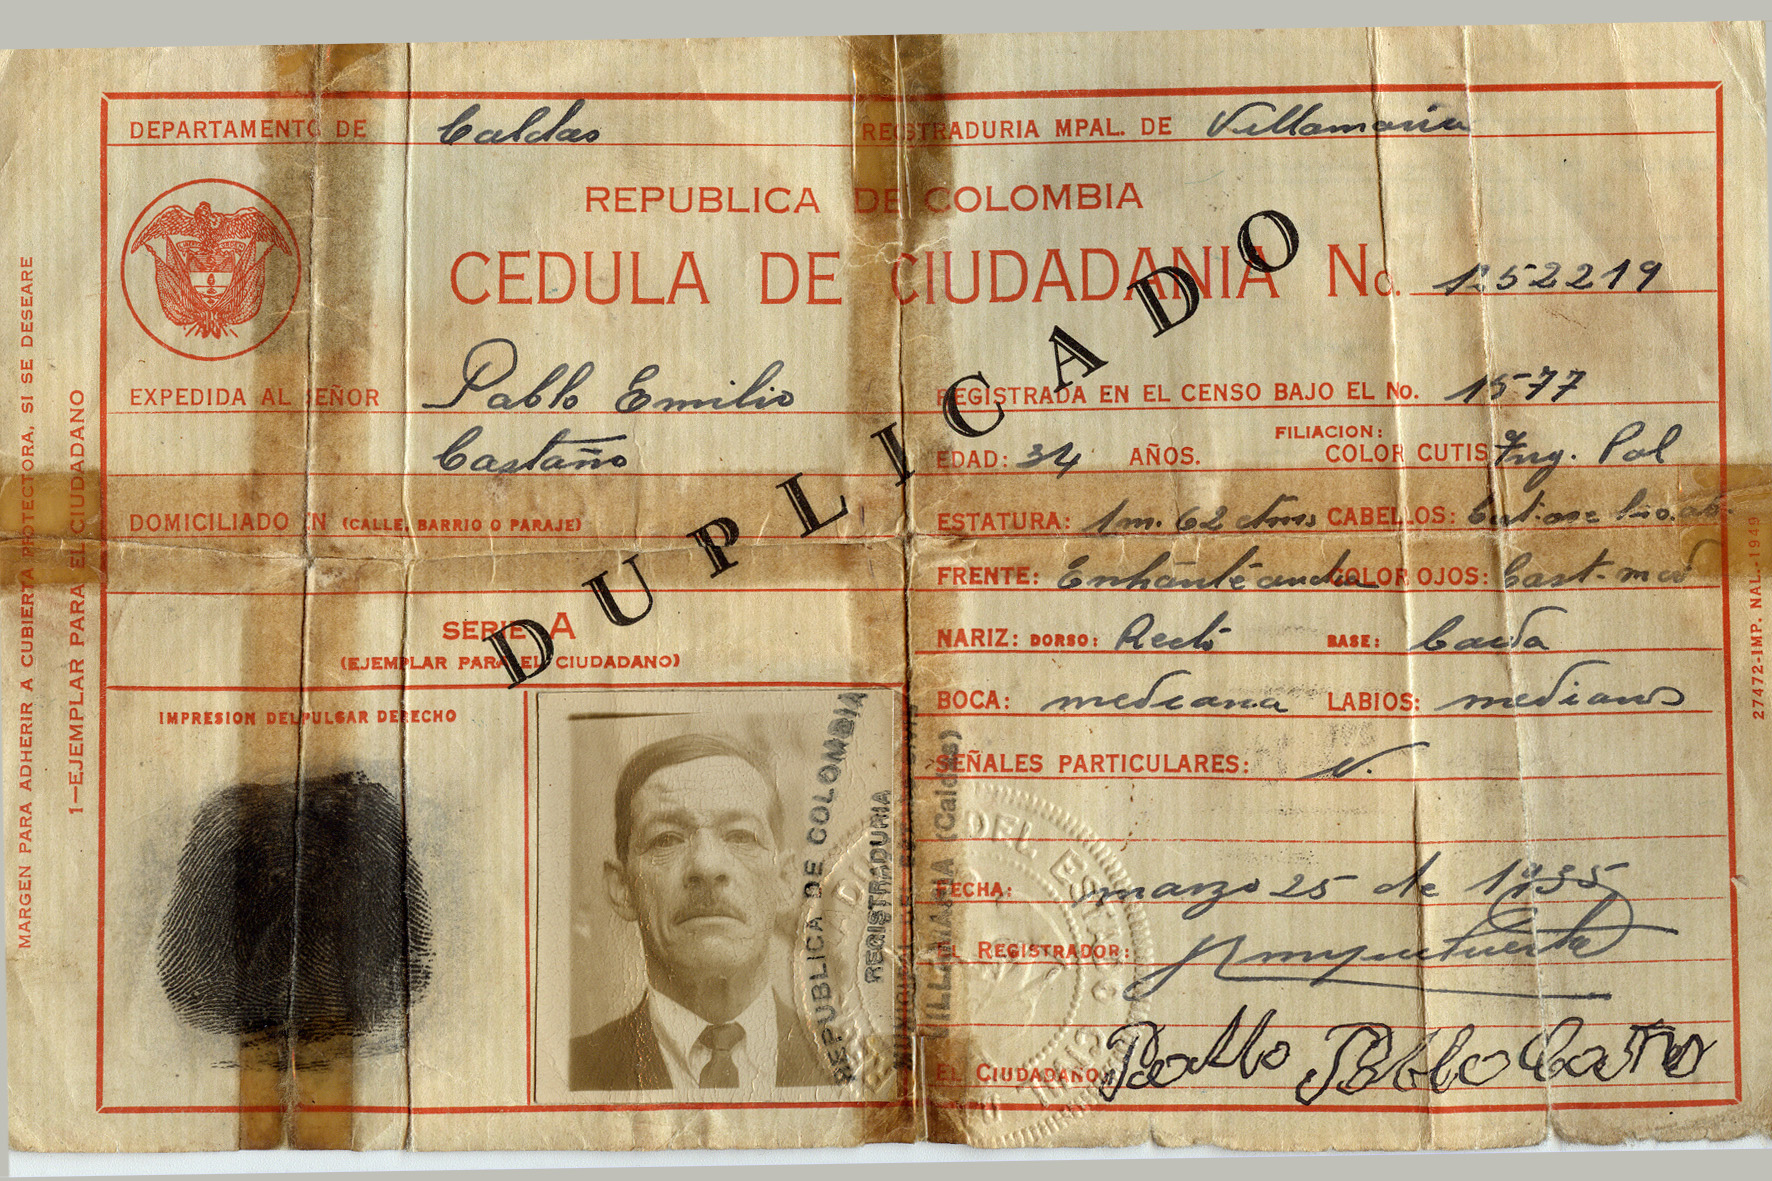 DEPARTAMENTO DE Caldas REGISTRADURIA MPAL. DE Villamaria
REPUBLICA DE COLOMBIA
CEDULA DE CIUDADANIA No. 1252219
EXPEDIDA AL SEÑOR Pablo Emilio
Castaño
REGISTRADA EN EL CENSO BAJO EL No. 1577
FILIACION:
EDAD: 34 AÑOS. COLOR CUTIS Trig. Pal
DOMICILIADO EN (CALLE, BARRIO O PARAJE)
ESTATURA: 1 m. 62 ctms CABELLOS:
FRENTE: COLOR OJOS: Cast-
SERIE A
(EJEMPLAR PARA EL CIUDADANO)
NARIZ: DORSO: Recto BASE: Caida
BOCA: mediana LABIOS: medianos
SEÑALES PARTICULARES: N.
IMPRESION DEL PULGAR DERECHO
FECHA: marzo 25 de 1935
EL REGISTRADOR:
EL CIUDADANO: Pablo Pablo Castaño
DUPLICADO
REPUBLICA DE COLOMBIA
REGISTRADURIA
VILLAMARIA (Caldas)
DEL ESTADO CIVIL
MARGEN PARA ADHERIR A CUBIERTA PROTECTORA, SI SE DESEARE
1—EJEMPLAR PARA EL CIUDADANO
27472-IMP. NAL.-1949